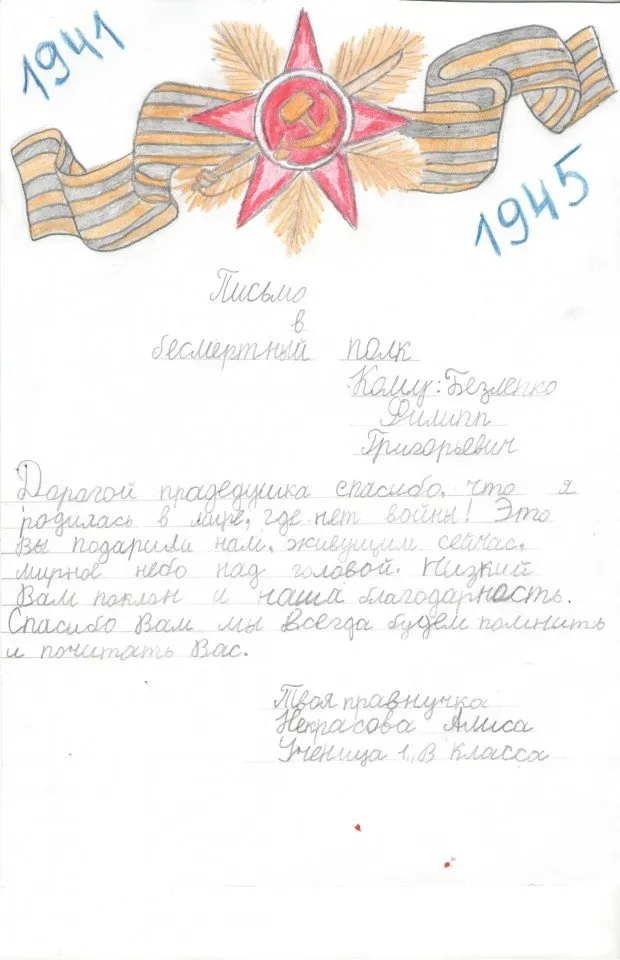 1941
1945
Письмо
в
бесмертный полк
Кому: Безлепко
Филипп
Григорьевич
Дорагой прадедушка спасибо, что я
родилась в мире, где нет войны! Это
вы подарили нам, живущим сейчас,
мирное небо над головой. Низкий
Вам поклон и наша благодарность.
Спасибо Вам мы всегда будем помнить
и почитать Вас.
Твоя правнучка
Некрасова Алиса
Ученица 1 „В" класса